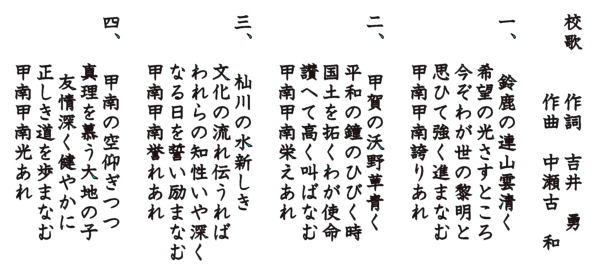 校歌　作詞　吉井　勇
作曲　中瀬古　和
一、
鈴鹿の連山雲清く
希望の光さすところ
今ぞわが世の黎明と
思ひて強く進まなむ
甲南甲南誇りあれ
二、
甲賀の沃野草青く
平和の鐘のひびく時
国土を拓くわが使命
讃へて高く叫ばなむ
甲南甲南栄えあれ
三、
杣川の水新しき
文化の流れ伝うれば
われらの知性いや深く
なる日を誓い励まなむ
甲南甲南誉れあれ
四、
甲南の空仰ぎつつ
真理を慕う大地の子
友情深く健やかに
正しき道を歩まなむ
甲南甲南光あれ